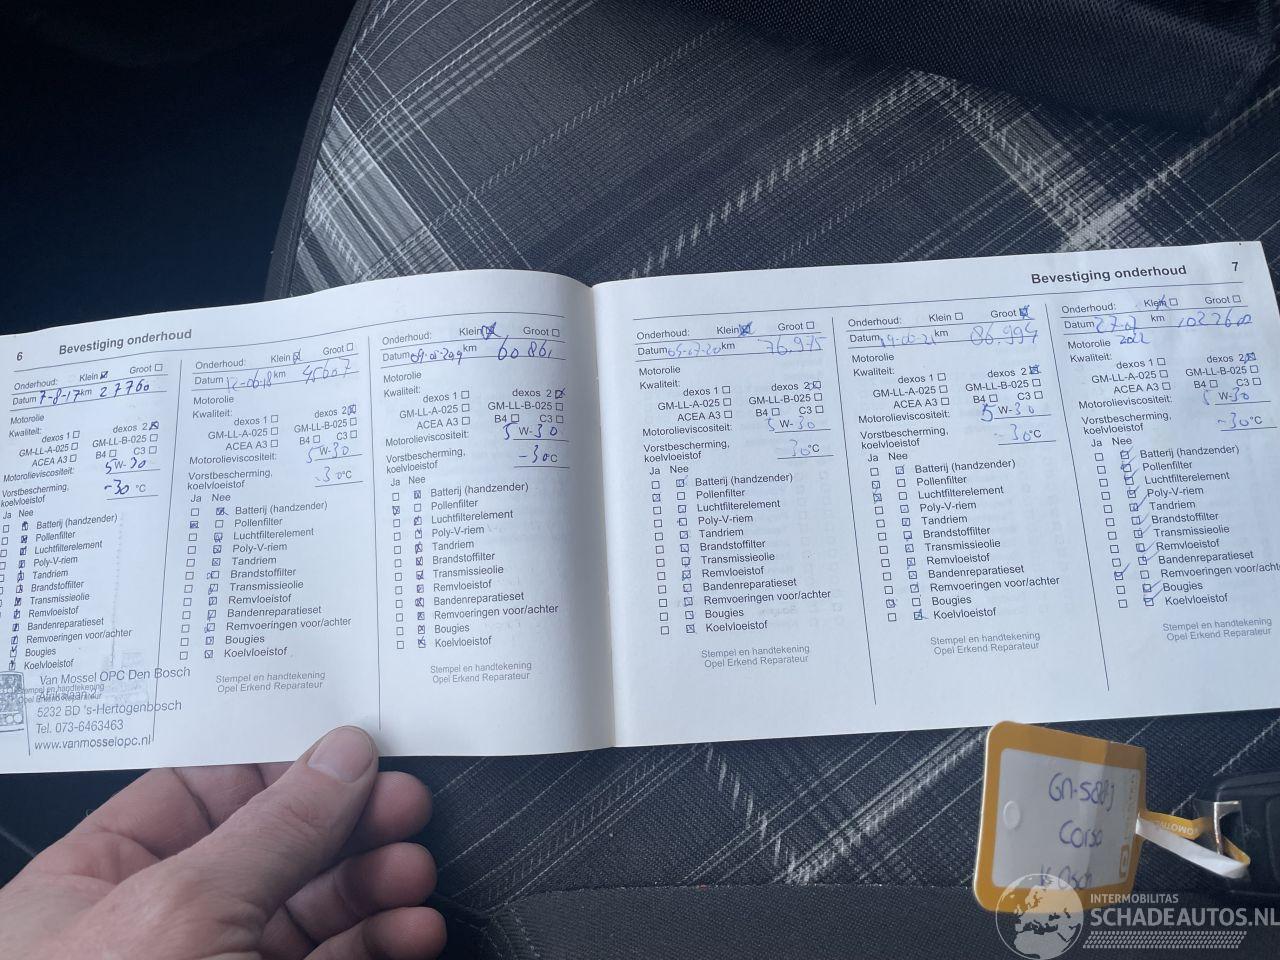 6 Bevestiging onderhoud
Onderhoud: Klein Groot
Datum 7-8-17 km 27760
Motorolie
Kwaliteit:
dexos 1 dexos 2
GM-LL-A-025 GM-LL-B-025
ACEA A3 B4 C3
Motorolieviscositeit: 5W-30
Vorstbescherming,
koelvloeistof -30 °C
Ja Nee
Batterij (handzender)
Pollenfilter
Luchtfilterelement
Poly-V-riem
Tandriem
Brandstoffilter
Transmissieolie
Remvloeistof
Bandenreparatieset
Remvoeringen voor/achter
Bougies
Koelvloeistof
Stempel en handtekening
Opel Erkend Reparateur
Van Mossel OPC Den Bosch
5232 BD 's-Hertogenbosch
Tel. 073-6463463
www.vanmosselopc.nl
Onderhoud: Klein Groot
Datum 12-06-18 km 45607
Motorolie
Kwaliteit:
dexos 1 dexos 2
GM-LL-A-025 GM-LL-B-025
ACEA A3 B4 C3
Motorolieviscositeit: 5W-30
Vorstbescherming,
koelvloeistof -30 °C
Ja Nee
Batterij (handzender)
Pollenfilter
Luchtfilterelement
Poly-V-riem
Tandriem
Brandstoffilter
Transmissieolie
Remvloeistof
Bandenreparatieset
Remvoeringen voor/achter
Bougies
Koelvloeistof
Stempel en handtekening
Opel Erkend Reparateur
Onderhoud: Klein Groot
Datum km
Motorolie
Kwaliteit:
dexos 1 dexos 2
GM-LL-A-025 GM-LL-B-025
ACEA A3 B4 C3
Motorolieviscositeit: 5W-30
Vorstbescherming,
koelvloeistof -30 °C
Ja Nee
Batterij (handzender)
Pollenfilter
Luchtfilterelement
Poly-V-riem
Tandriem
Brandstoffilter
Transmissieolie
Remvloeistof
Bandenreparatieset
Remvoeringen voor/achter
Bougies
Koelvloeistof
Stempel en handtekening
Opel Erkend Reparateur
Bevestiging onderhoud 7
Onderhoud: Klein Groot
Datum 09-07-20 km 76.975
Motorolie
Kwaliteit:
dexos 1 dexos 2
GM-LL-A-025 GM-LL-B-025
ACEA A3 B4 C3
Motorolieviscositeit: 5W-30
Vorstbescherming,
koelvloeistof -30°C
Ja Nee
Batterij (handzender)
Pollenfilter
Luchtfilterelement
Poly-V-riem
Tandriem
Brandstoffilter
Transmissieolie
Remvloeistof
Bandenreparatieset
Remvoeringen voor/achter
Bougies
Koelvloeistof
Stempel en handtekening
Opel Erkend Reparateur
Onderhoud: Klein Groot
Datum km 86.994
Motorolie
Kwaliteit:
dexos 1 dexos 2
GM-LL-A-025 GM-LL-B-025
ACEA A3 B4 C3
Motorolieviscositeit: 5W-30
Vorstbescherming,
koelvloeistof -30°C
Ja Nee
Batterij (handzender)
Pollenfilter
Luchtfilterelement
Poly-V-riem
Tandriem
Brandstoffilter
Transmissieolie
Remvloeistof
Bandenreparatieset
Remvoeringen voor/achter
Bougies
Koelvloeistof
Stempel en handtekening
Opel Erkend Reparateur
Onderhoud: Klein Groot
Datum 27-07 km
Motorolie 2022
Kwaliteit:
dexos 1 dexos 2
GM-LL-A-025 GM-LL-B-025
ACEA A3 B4 C3
Motorolieviscositeit: 5W-30
Vorstbescherming,
koelvloeistof -30°C
Ja Nee
Batterij (handzender)
Pollenfilter
Luchtfilterelement
Poly-V-riem
Tandriem
Brandstoffilter
Transmissieolie
Remvloeistof
Bandenreparatieset
Remvoeringen voor/achter
Bougies
Koelvloeistof
Stempel en handtekening
Opel Erkend Reparateur
Corsa
INTERMOBILITAS
SCHADEAUTOS.NL